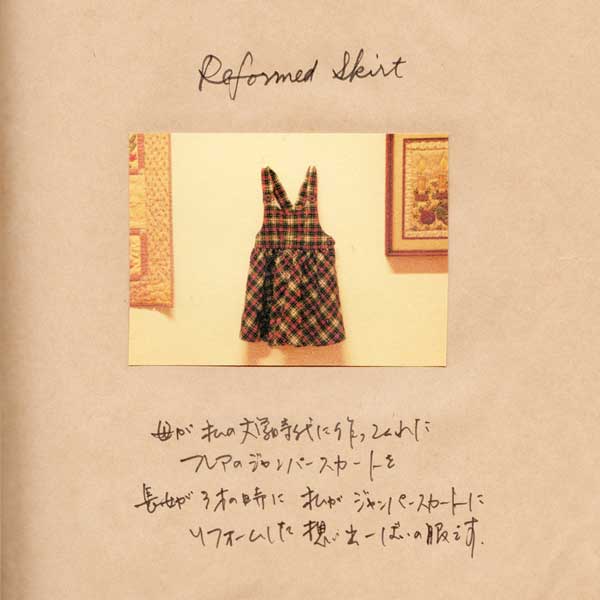 Reformed Skirt
母が 私の 時代に作ってくれた
フレアのジャンパースカートを
長女が 3才の時に 私が ジャンパースカートに
リフォームした 想い出一ぱいの服です.